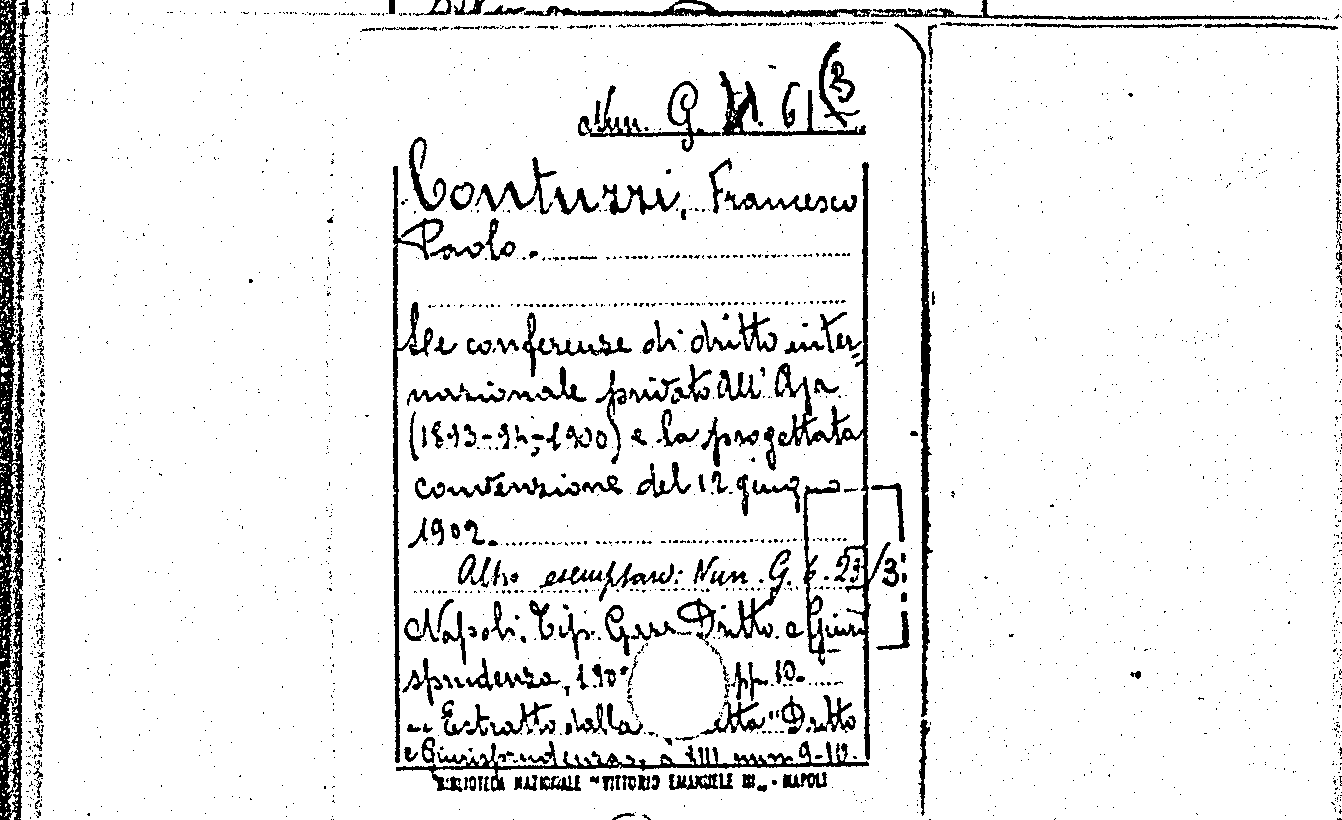 Nun. G. 6 (3
Contuzzi, Francesco
Paolo.
Le conferenze di dritto inter-
nazionale privato all' Aja
(1893-94-1900) e la progettata
convenzione del 12 giugno
1902.
Altro esemplare: Nun. G. 6. 23/3
Napoli. Tip. Gazz. Dritto e Giuri
sprudenza, 190 pp. 10.
Estratto dalla "Dritto
e Giurisprudenza, a num 9-10.
BIBLIOTECA NAZIONALE "VITTORIO EMANUELE III„ - NAPOLI